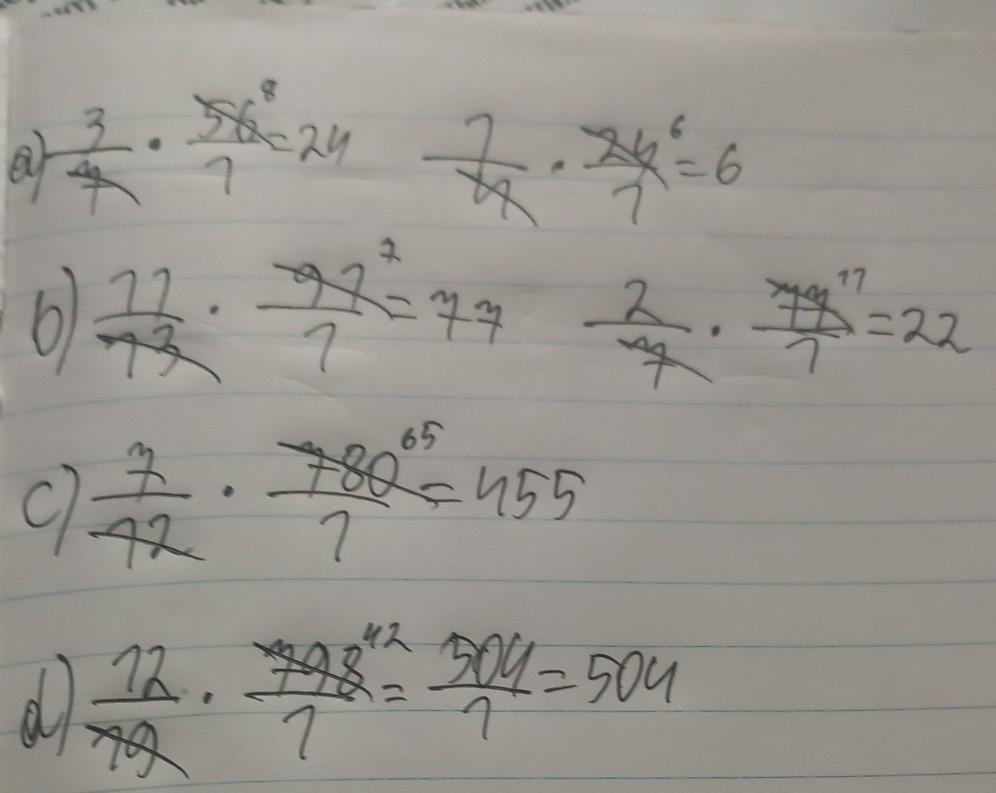 a) 3/7 · 56/1 8 = 24 1/4 · 24/1 6 = 6
b) 11/13 · 91/1 7 = 77 2/7 · 77/1 11 = 22
c) 7/12 · 780/1 65 = 455
d) 12/19 · 798/1 42 = 504/1 = 504